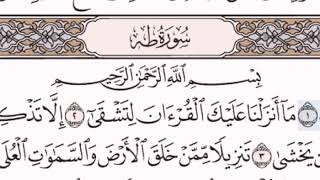 سُورَةُ طه
بِسْمِ اللَّهِ الرَّحْمَٰنِ الرَّحِيمِ
١ مَا أَنزَلْنَا عَلَيْكَ الْقُرْءَانَ لِتَشْقَىٰ ٢ إِلَّا تَذْكِ
يَخْشَىٰ ٣ تَنزِيلًا مِّمَّنْ خَلَقَ الْأَرْضَ وَالسَّمَٰوَٰتِ الْعُلَى